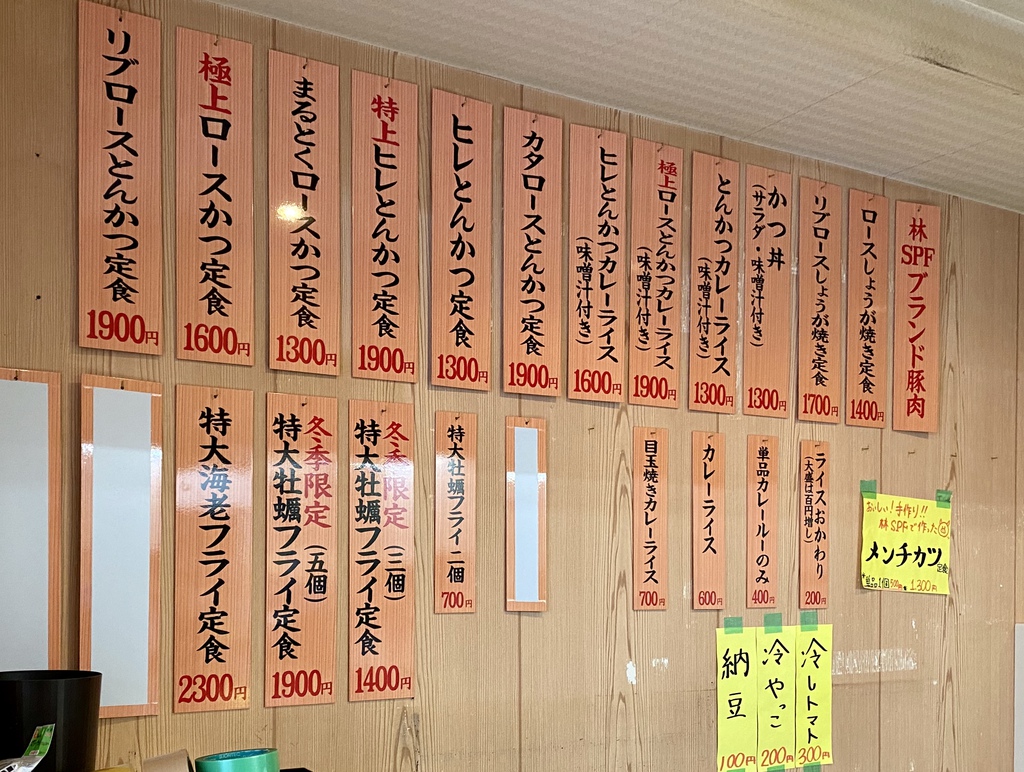 リブロースとんかつ定食
1900円
極上ロースかつ定食
1600円
まるとくロースかつ定食
1300円
特上ヒレとんかつ定食
1900円
ヒレとんかつ定食
1300円
カタロースとんかつ定食
1900円
ヒレとんかつカレーライス
(味噌汁付き)
1600円
極上ロースとんかつカレーライス
(味噌汁付き)
1900円
とんかつカレーライス
(味噌汁付き)
1300円
かつ丼
(サラダ・味噌汁付き)
1300円
リブロースしょうが焼き定食
1700円
ロースしょうが焼き定食
1400円
林
SPF
ブランド豚肉
特大海老フライ定食
2300円
冬季限定
特大牡蠣フライ定食
(五個)
1900円
冬季限定
特大牡蠣フライ定食
(三個)
1400円
特大牡蠣フライ二個
700円
目玉焼きカレーライス
700円
カレーライス
600円
単品カレールーのみ
400円
ライスおかわり
(大盛は百円増し)
200円
おいしい!手作り!!
林SPFで作った
メンチカツ定食
単品1個500円 1,300円
納豆
100円
冷やっこ
200円
冷しトマト
300円